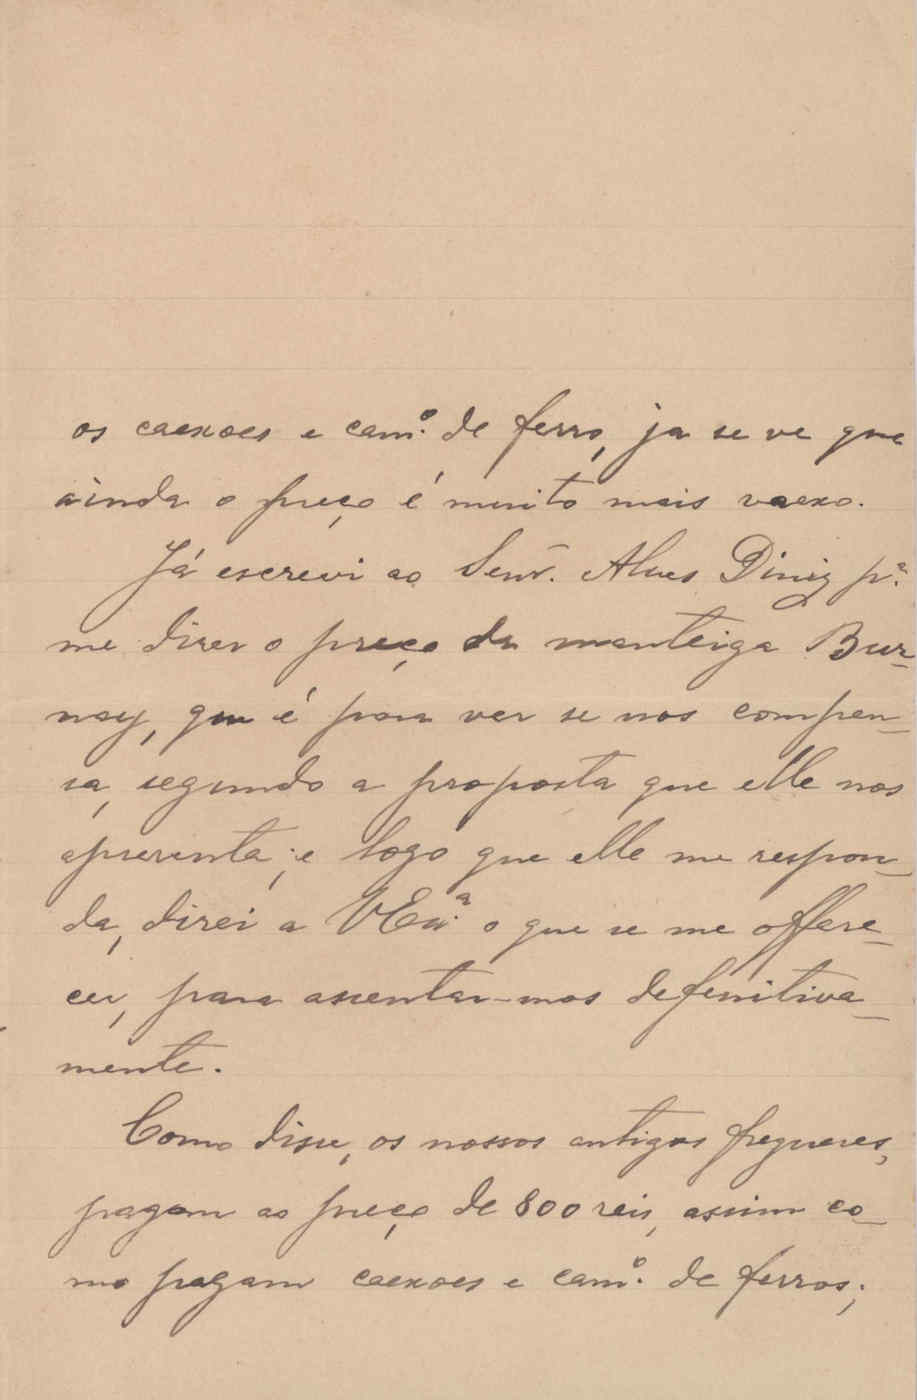 os caexoes e cam.º de ferro, ja se ve que
ainda o preço é muito mais vaexo.
Já escrevi ao Senr. Alves Diniz p.ª
me direr o preço da manteiga Bur-
nay, que é para ver se nos compen-
sa, segundo a proposta que elle nos
apresenta; e logo que elle me respon-
da, direi a VExª o que se me offere-
cer, para assentar-mos defenitiva-
mente.
Como disse, os nossos antigos freguezes,
pagam ao preço de 800 reis, assim co-
mo pagam caexoes e cam.º de ferros;